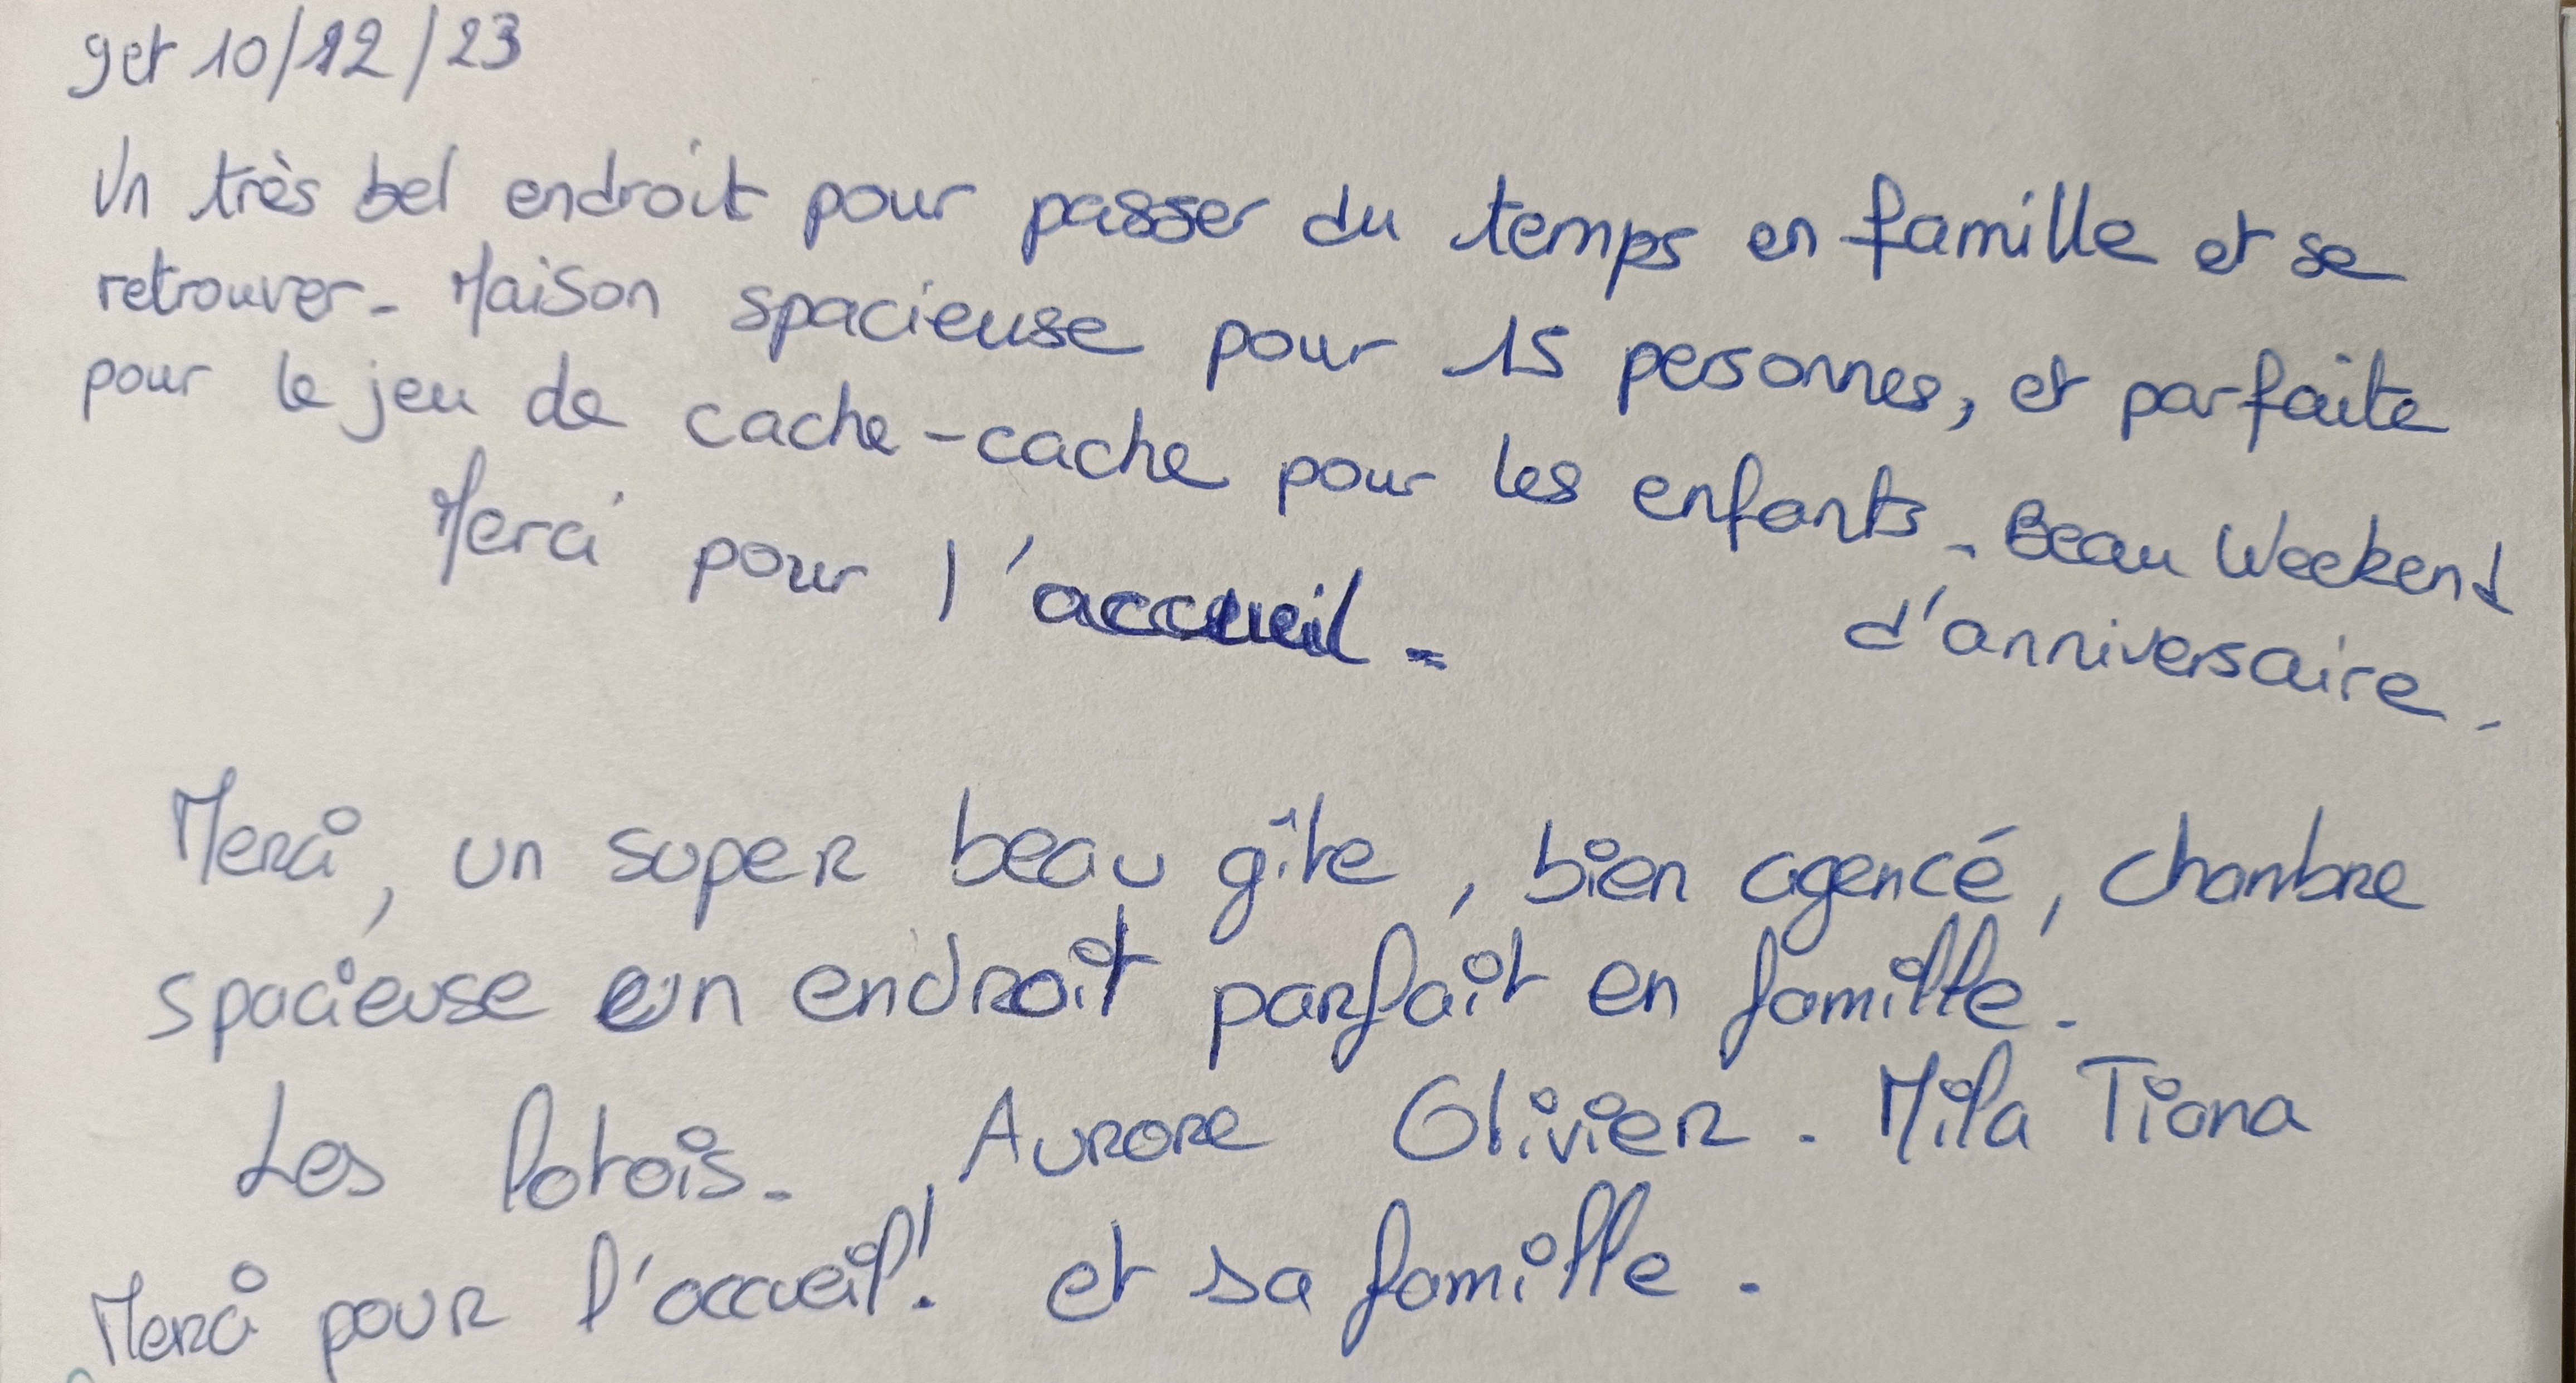 9 et 10/12/23
Un très bel endroit pour passer du temps en famille et se
retrouver - Maison spacieuse pour 15 personnes, et parfaite
pour le jeu de cache-cache pour les enfants - Beau Weekend
d'anniversaire.
Merci pour l'accueil -
Merci, un super beau gîte, bien agencé, chambre
spacieuse un endroit parfait en famille.
Les Potois. Aurore Olivier. Mila Tiana
et sa famille.
Merci pour l'accueil!